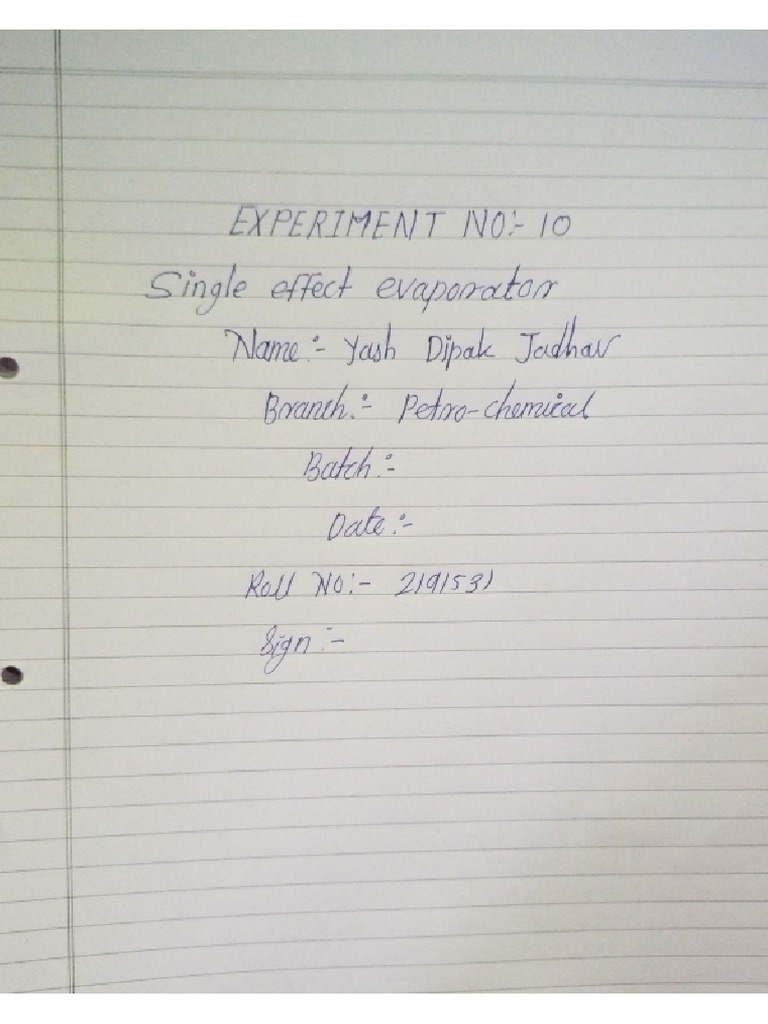 EXPERIMENT NO:- 10
Single effect evaporator
Name:- Yash Dipak Jadhav
Branch:- Petro-chemical
Batch:-
Date:-
Roll No:- 219153)
Sign:-